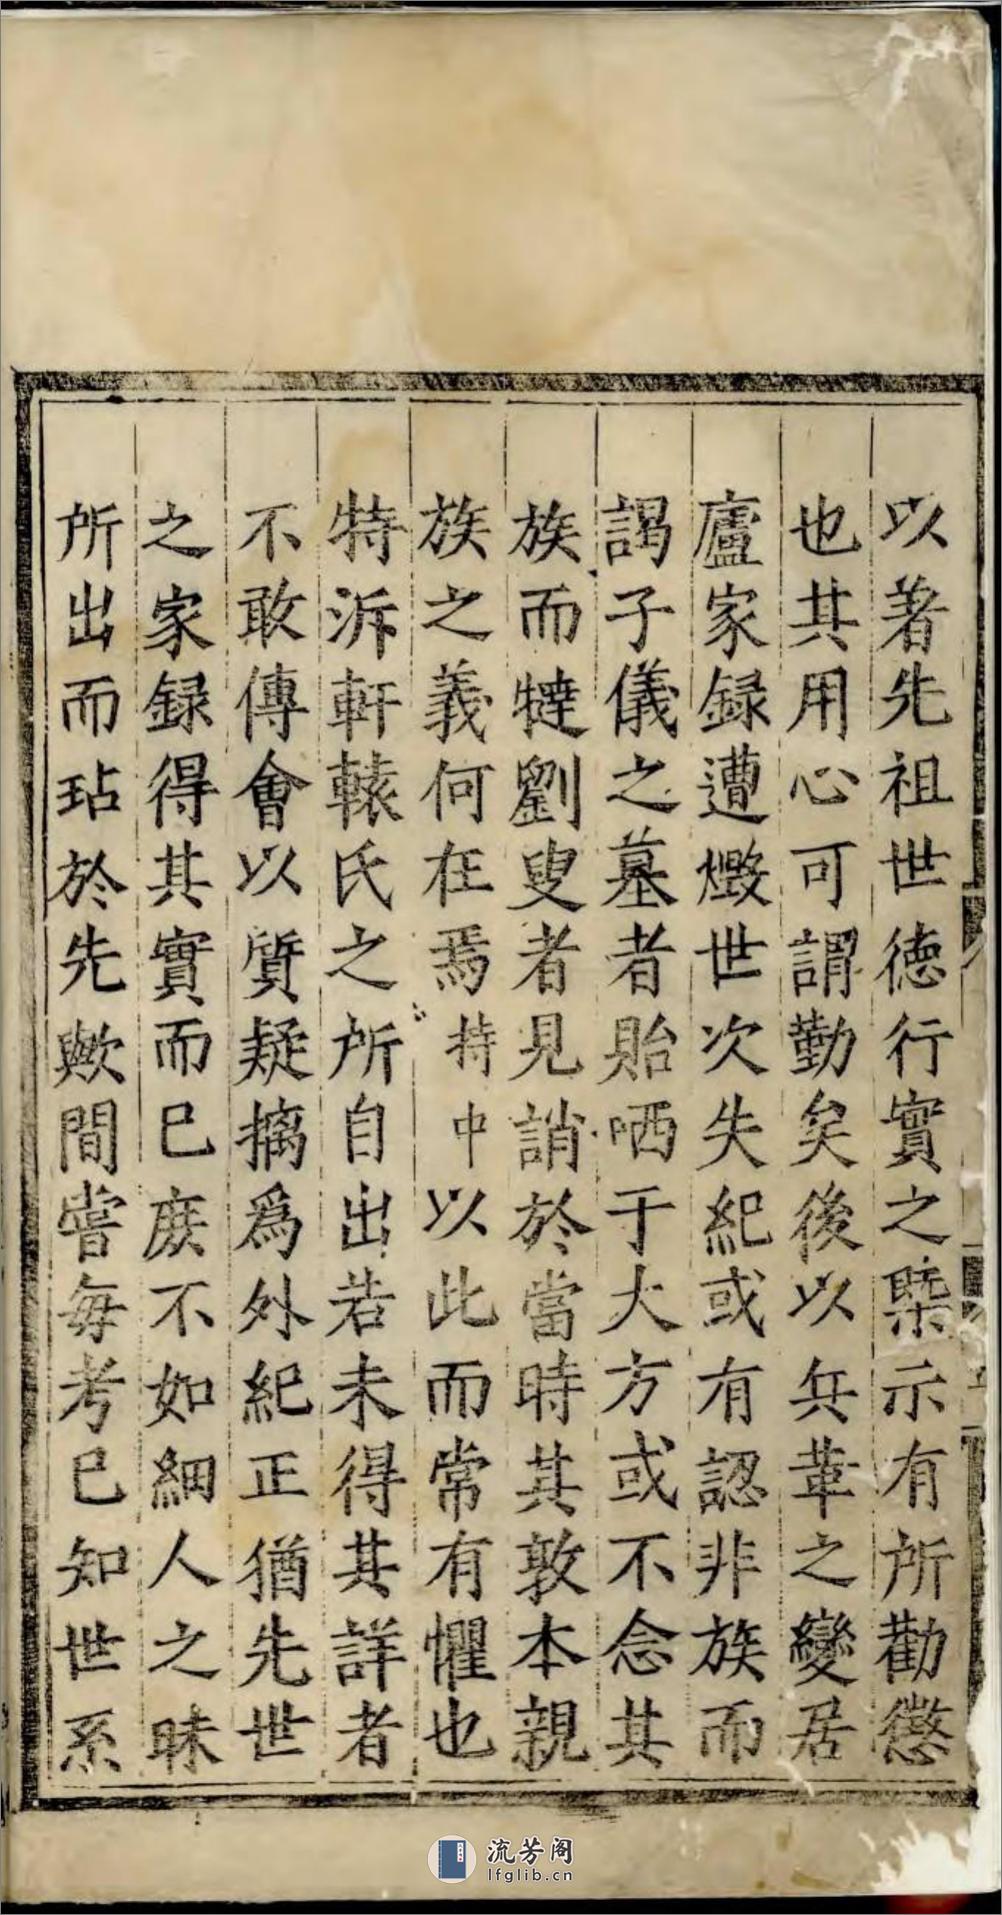 以著先祖世德行實之槩示有所勸懲
也其用心可謂勤矣後以兵革之變居
廬家録遭燬世次失紀或有認非族而
謁子儀之墓者貽哂于大方或不念其
族而撻劉叟者見誚於當時其敦本親
族之義何在焉持中以此而常有懼也
特泝軒轅氏之所自出若未得其詳者
不敢傳會以質疑摘爲外紀正猶先世
之家録得其實而已庻不如細人之昧
所出而玷於先歟間嘗每考已知世系
流芳阁
lfglib.cn